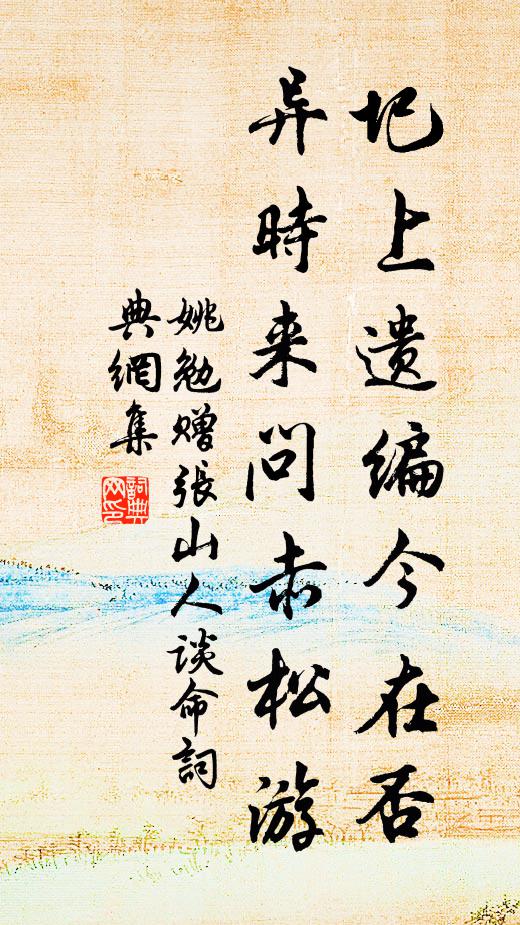 圯上遗编今在否
异時来问赤松游
姚勉赠張山人谈命詞
典網集
詞典网印